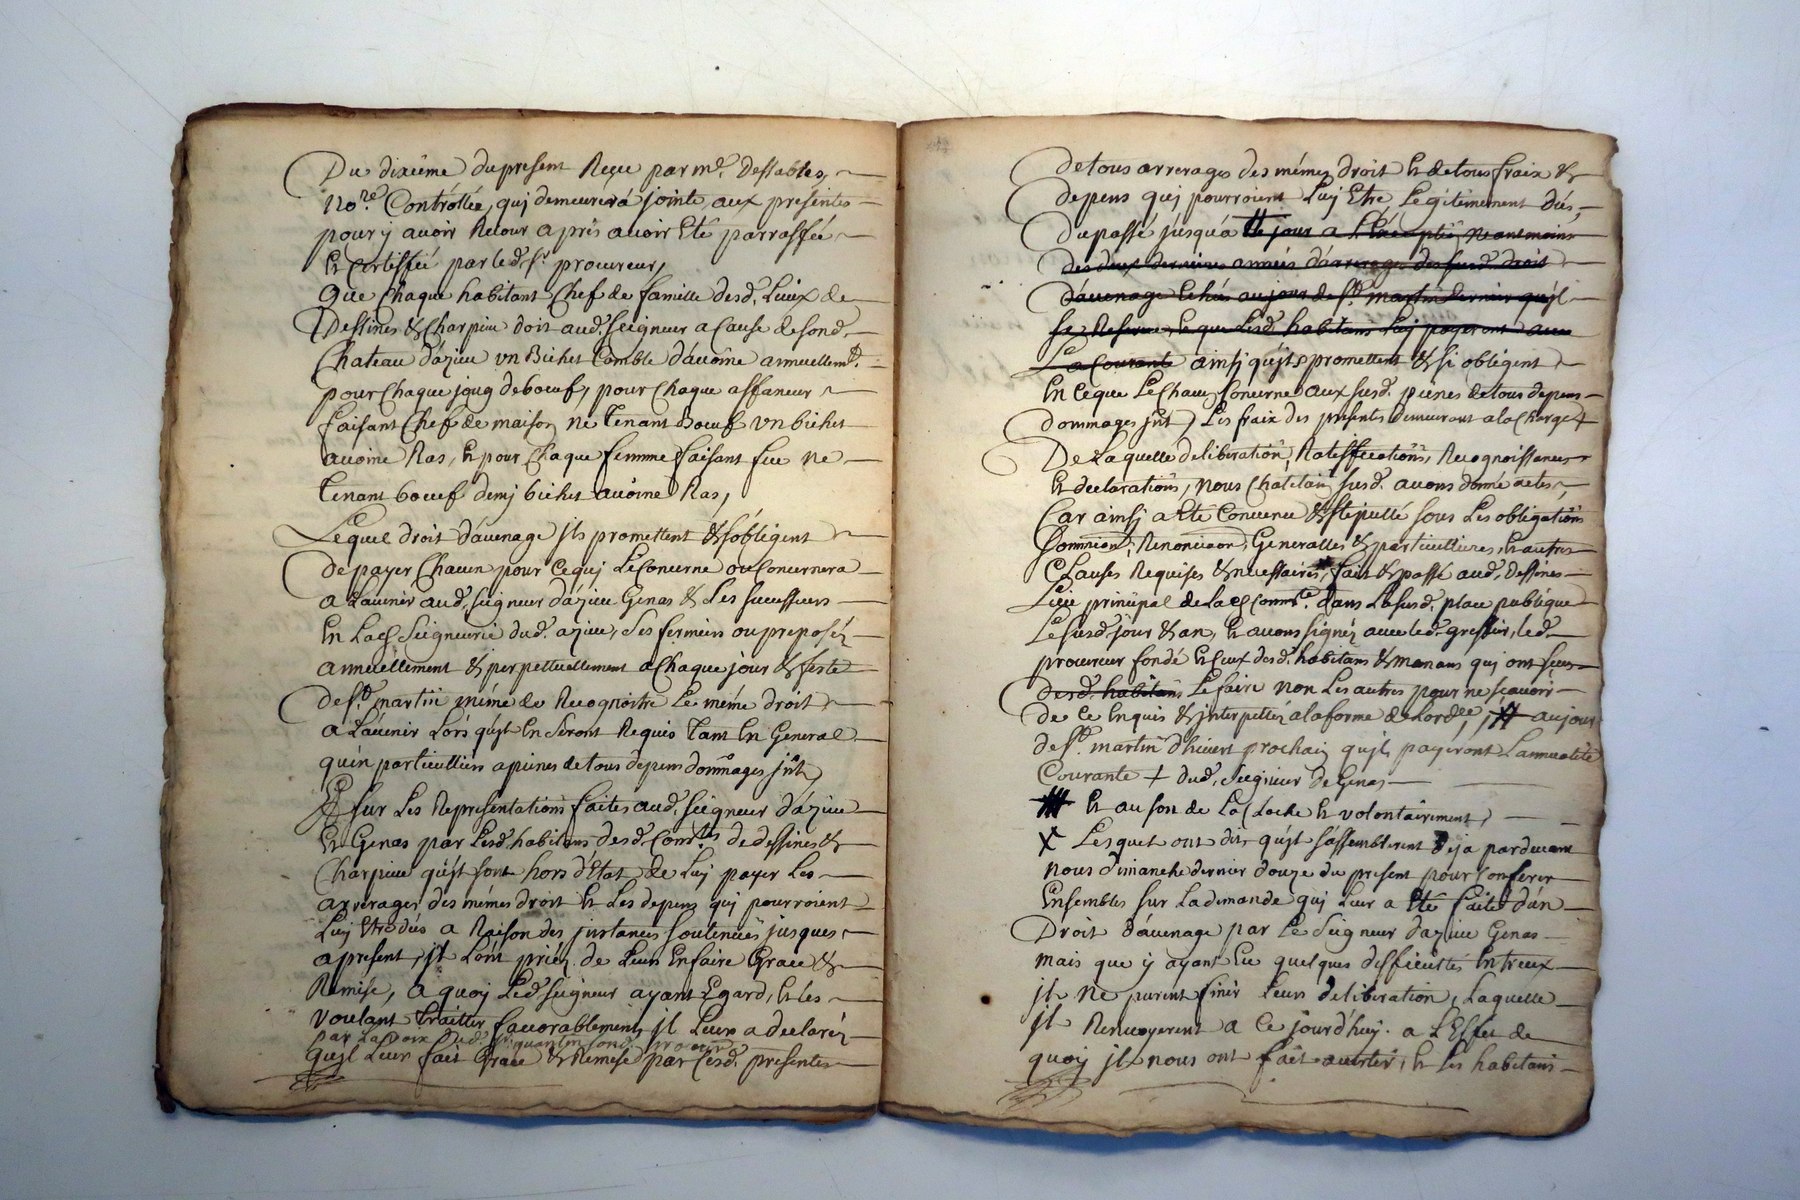 Du dixiême du present Reçu par me. Dessables,
nore. Contrôllée, qui demeurera jointe aux presentes
pour y avoir Recour apres avoir Eté parraffée
Et Certiffié par led. sr. procureur,
Que Chaque habitant Chef de famille desd. Lieux de
Dessines & Charpieu doit aud. seigneur a Cause de sond.
Chateau d'azieu un Bichet Comble d'avoine annuellemt.
pour Chaque joug de bœuf, pour Chaque affaneur
faisant Chef de maison ne Tenant Bœuf un bichet
avoine Ras, Et pour Chaque femme faisant feu ne
Tenant bœuf demy bichet avoine Ras,
Lequel droit d'avenage ils promettent & s'obligent
de payer Chacun pour Ce qui Le Concerne ou Concernera
a L'avenir aud. seigneur d'azieu Genas & Ses successeurs
En Lad. Seigneurie dud. azieu, ses fermiers ou preposéz
annuellement & perpettuellement a Chaque jour & feste
de st. martin même de Recognoitre Le même droit
a L'avenir Lors qu'ils En seront Requis Tant En General
qu'en particulliers a peines de tous depens dommages jnts
Et sur Les Representations faites aud. seigneur d'azieu
Et Genas par Lesd. habitans desd. Comtés. de dessines &
Charpieu qu'ils sont hors d'Etat de Luy payer Les
arrerages des mêmes droit Et Les depens qui pourroient
Luy Etre dûs a Raison des jnstances soutenuës jusques
a present, ils L'ont priéz de Leurs En faire Grace &
Remise, a quoy Led. seigneur ayant Egard, Et les
voulant traitter favorablement, il Leurs a declaréz
par la voix dud. sr. quantin sond. procureur
qu'il Leur fait Grace & Remise par Cesd. presentes
de tous arrerages des mêmes droit Et de tous fraix &
depens qui pourroient Luy Etre Legitimement dûs,
du passé jusqu'a ce jour a L'Exception neanmoins
des deux dernieres années d'arrerages des susd. droit
d'avenage Echûs au jour de st. martin dernier qu'il
se Reserve, Et que Lesd. habitans Luy payeront avec
La Courante ainsi qu'ils promettent & s'y obligent
En Ce que Le Chacun Concerne aux susd. peines de tous depens
dommages jnts, Les fraix des presentes demeurant a la Charge +
De Laquelle deliberation, Ratiffications, Recognoissances
Et declarations, nous Chatelain susd. avons donné actes,
Car ainsy a Eté Convenu & stipullé sous Les obligations
soumissions, Renonciaons, Generalles & particullieres, Et autres
Clauses Requises & necessaires, fait & passé aud. dessines
Lieu principal de lad. Commté. dans La susd. place publique
Le susd. jour & an, Et avons signéz avec led. greffier, led.
procureur fondé Et Ceux desd. habitans & manans qui ont sceus
desd. habitans Le faire non Les autres pour ne scavoir
de Ce Enquis & jnterpelléz a la forme de Lordce, # au jour
de st. martin d'hivert prochain qu'ils payeront L'annualité
Courante + dud. seigneur de Genas
# Et au son de La Cloche Et volontairement,
X Lesquels ont dits qu'ils s'assemblerent deja pardevant
nous dimanche dernier douze du present pour Conferer
Ensembles sur La demande qui Leur a Eté faite d'un
Droit d'avenage par Le Seigneur d'azieu Genas
mais que y ayant Eu quelques difficultés Entreux
ils ne purent finir Leurs deliberation, Laquelle
ils Renvoyerent a Ce jourd'huy. a L'Effet de
quoy ils nous ont fait avertir, Et les habitans